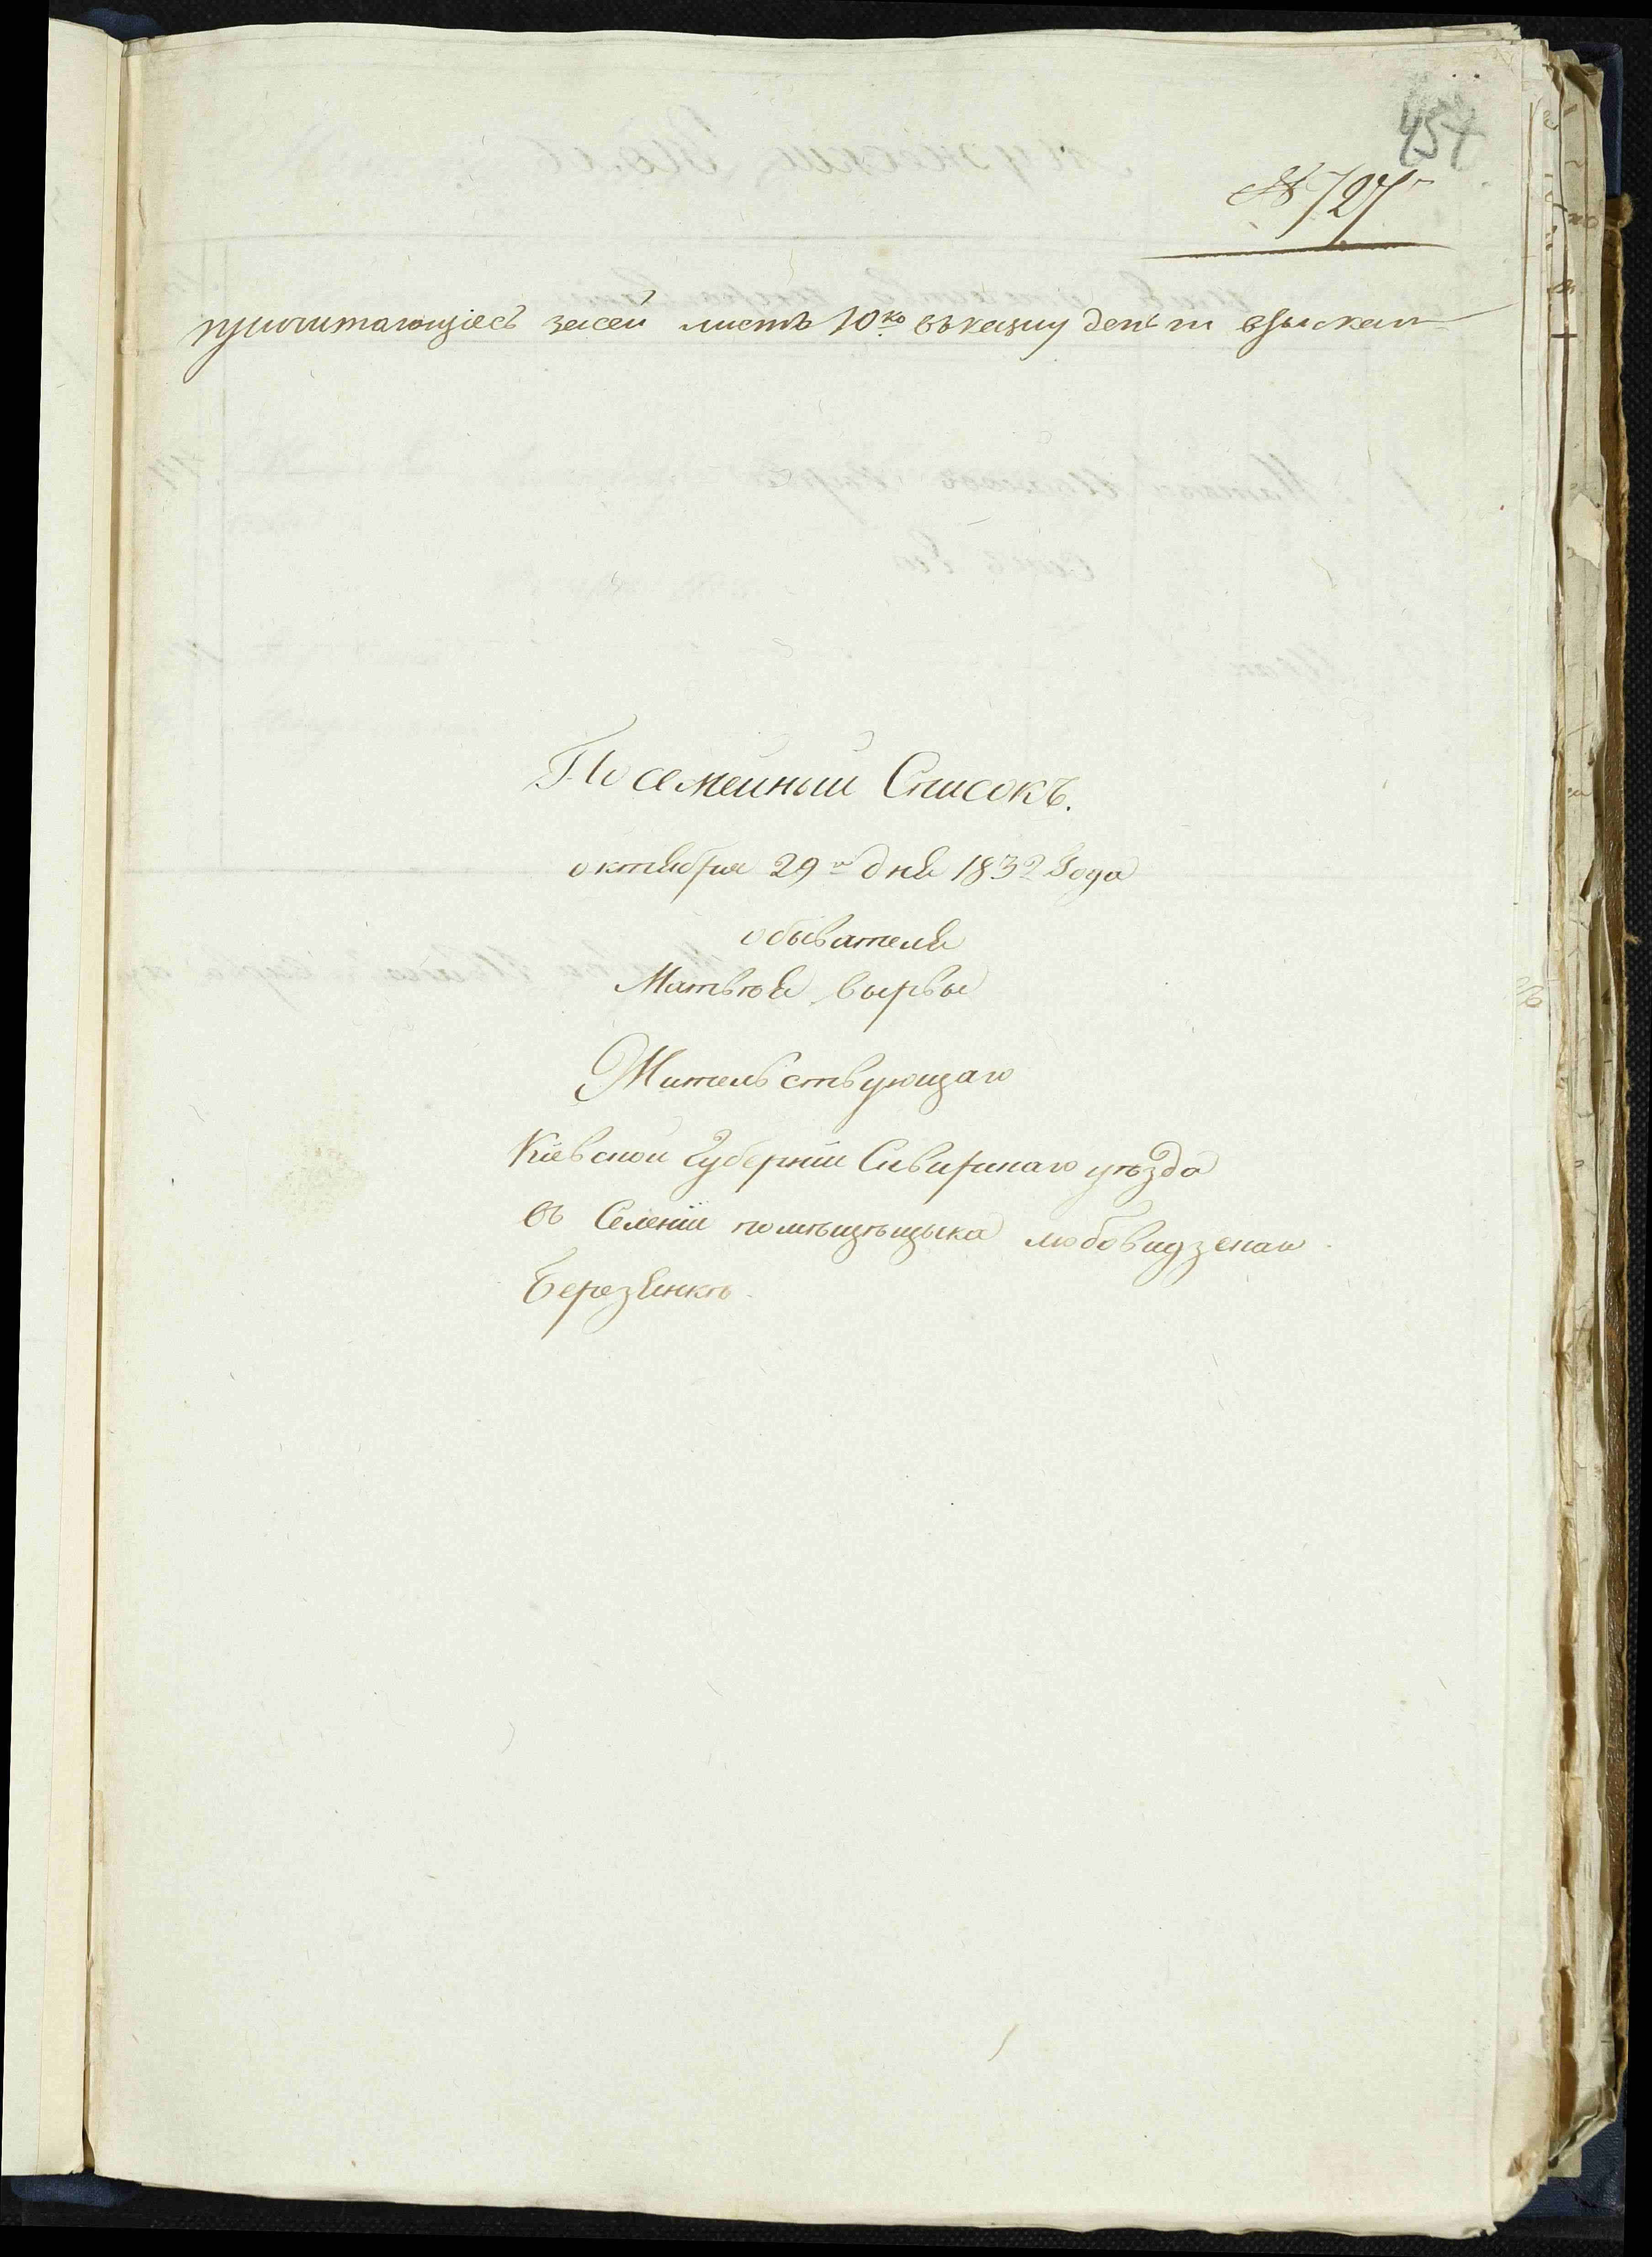 457
№ 727
причитающіесъ засей листъ 10ко въказну денги взыскан
Посемейный Списокъ.
октября 29го дня 1832 Года
обывателя
Матвѣя вырвы
Жительствующаго
Кіевской Губерніи Сквирскаго уѣзда
въ Селеніи помѣщѣцыка любовидзскаго
Березянкѣ.